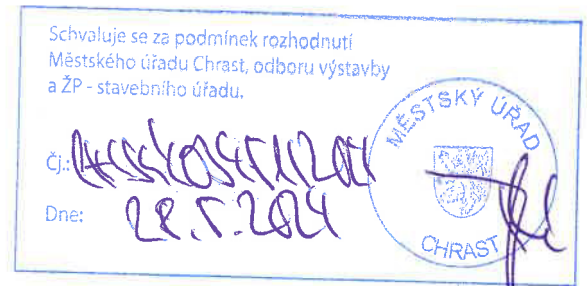 Schvaluje se za podmínek rozhodnutí
Městského úřadu Chrast, odboru výstavby
a ŽP - stavebního úřadu.
Čj.:
Dne: 28.5.2024
MĚSTSKÝ ÚŘAD
CHRAST